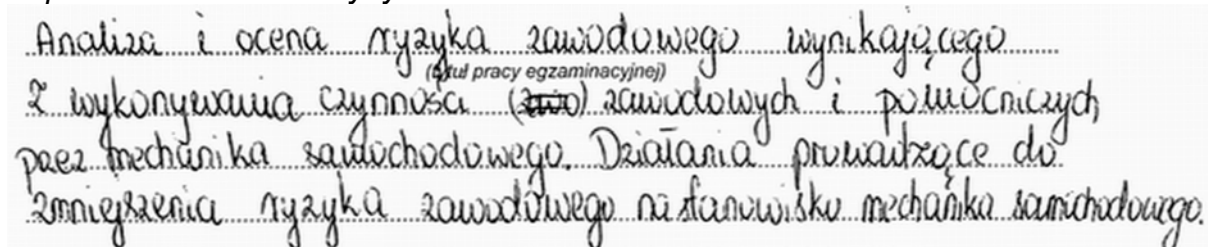 Analiza i ocena ryzyka zawodowego wynikającego
(tytuł pracy egzaminacyjnej)
z wykonywania czynności (zwo) zawodowych i pomocniczych
przez mechanika samochodowego. Działania prowadzące do
zmniejszenia ryzyka zawodowego na stanowisku mechanika samochodowego.